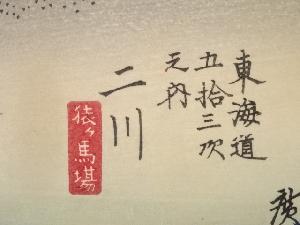 東海道
五拾三次
之内
二川
猿ヶ馬場
廣